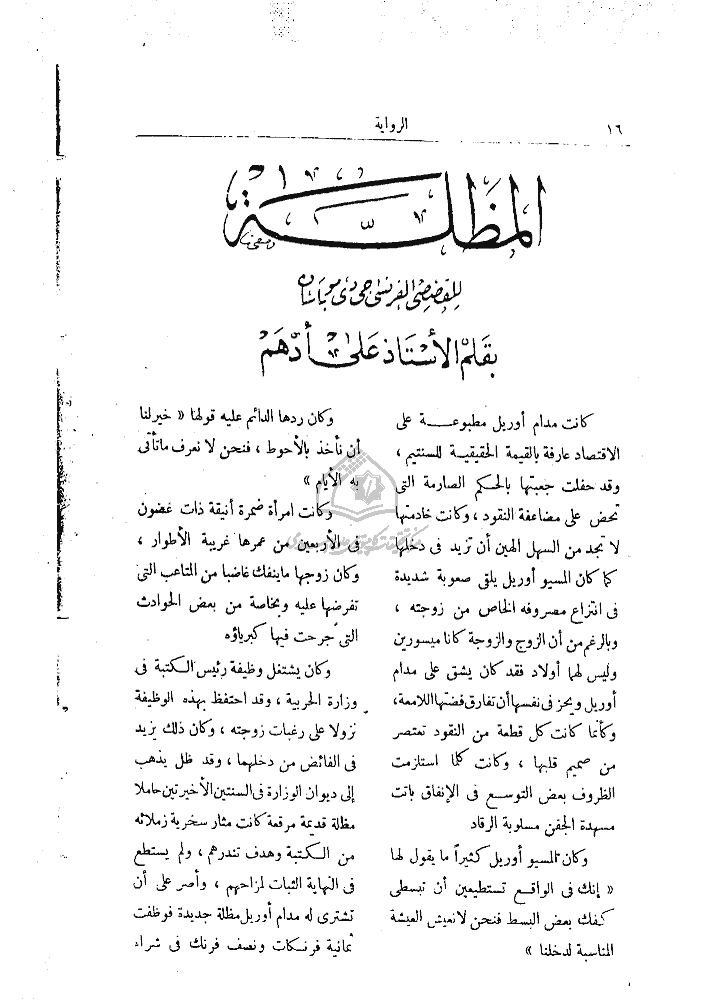 ١٦
الرواية
المظلة
للقصصى الفرنسى جى دى موباسان
بقلم الأستاذ على أدهم
كانت مدام أوريل مطبوعة على
الاقتصاد عارفة بالقيمة الحقيقية للسنتيم ،
وقد حفلت جعبتها بالحكم الصارمة التى
تحض على مضاعفة النقود ، وكانت خادمتها
لا تجد من السهل الهين أن تزيد فى دخلها
كما كان المسيو أوريل يلقى صعوبة شديدة
فى انتزاع مصروفه الخاص من زوجته ،
وبالرغم من أن الزوج والزوجة كانا ميسورين
وليس لهما أولاد فقد كان يشق على مدام
أوريل ويحز فى نفسها أن تفارق فضتها اللامعة،
وكأنما كانت كل قطعة من النقود تعتصر
من صميم قلبها ، وكانت كلما استلزمت
الظروف بعض التوسع فى الإنفاق باتت
مسهدة الجفن مسلوبة الرقاد
وكان المسيو أوريل كثيراً ما يقول لها
« إنك فى الواقع تستطيعين أن تبسطى
كفك بعض البسط فنحن لانعيش العيشة
المناسبة لدخلنا »
وكان ردها الدائم عليه قولها « خيرلنا
أن نأخذ بالأحوط ، فنحن لا نعرف ماتأتى
به الأيام »
وكانت امرأة ضمرة أنيقة ذات غضون
فى الأربعين من عمرها غريبة الأطوار ،
وكان زوجها ماينفك غاضبا من المتاعب التى
تفرضها عليه وبخاصة من بعض الحوادث
التى جرحت فيها كبرياؤه
وكان يشتغل وظيفة رئيس الكتبة فى
وزارة الحربية ، وقد احتفظ بهذه الوظيفة
نزولا على رغبات زوجته ، وكان ذلك يزيد
فى الفائض من دخلهما ، وقد ظل يذهب
إلى ديوان الوزارة فى السنتين الأخيرتين حاملا
مظلة قديمة مرقعة كانت مثار سخرية زملائه
من الكتبة وهدف تندرهم ، ولم يستطع
فى النهاية الثبات لمزاحهم ، وأصر على أن
تشترى له مدام أوريل مظلة جديدة فوظفت
ثمانية فرنكات ونصف فرنك فى شراء